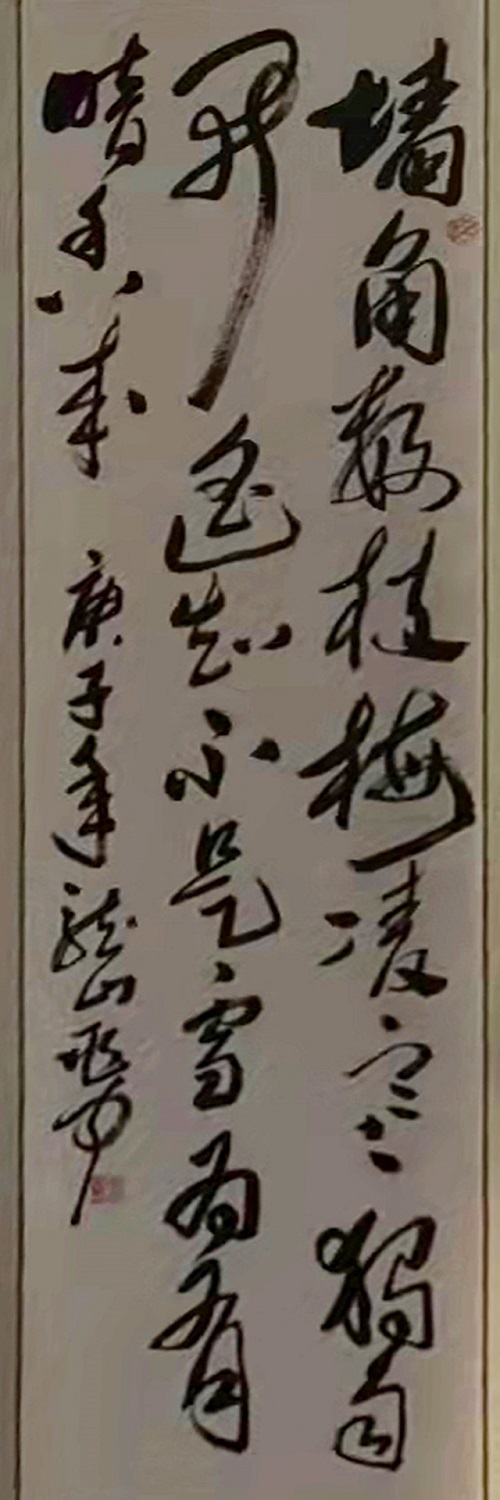 墙角数枝梅凌寒独自
开遥知不是雪为有
暗香来 庚子年龙山